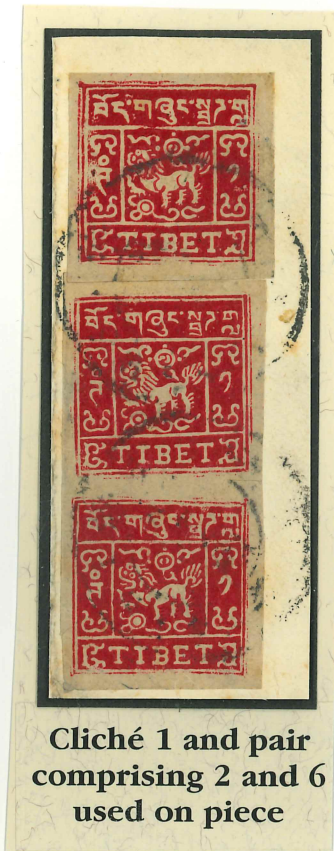 བོད་གཞུང་སྦྲག
TIBET
བོད་གཞུང་སྦྲག
TIBET
བོད་གཞུང་སྦྲག
TIBET
Cliché 1 and pair
comprising 2 and 6
used on piece